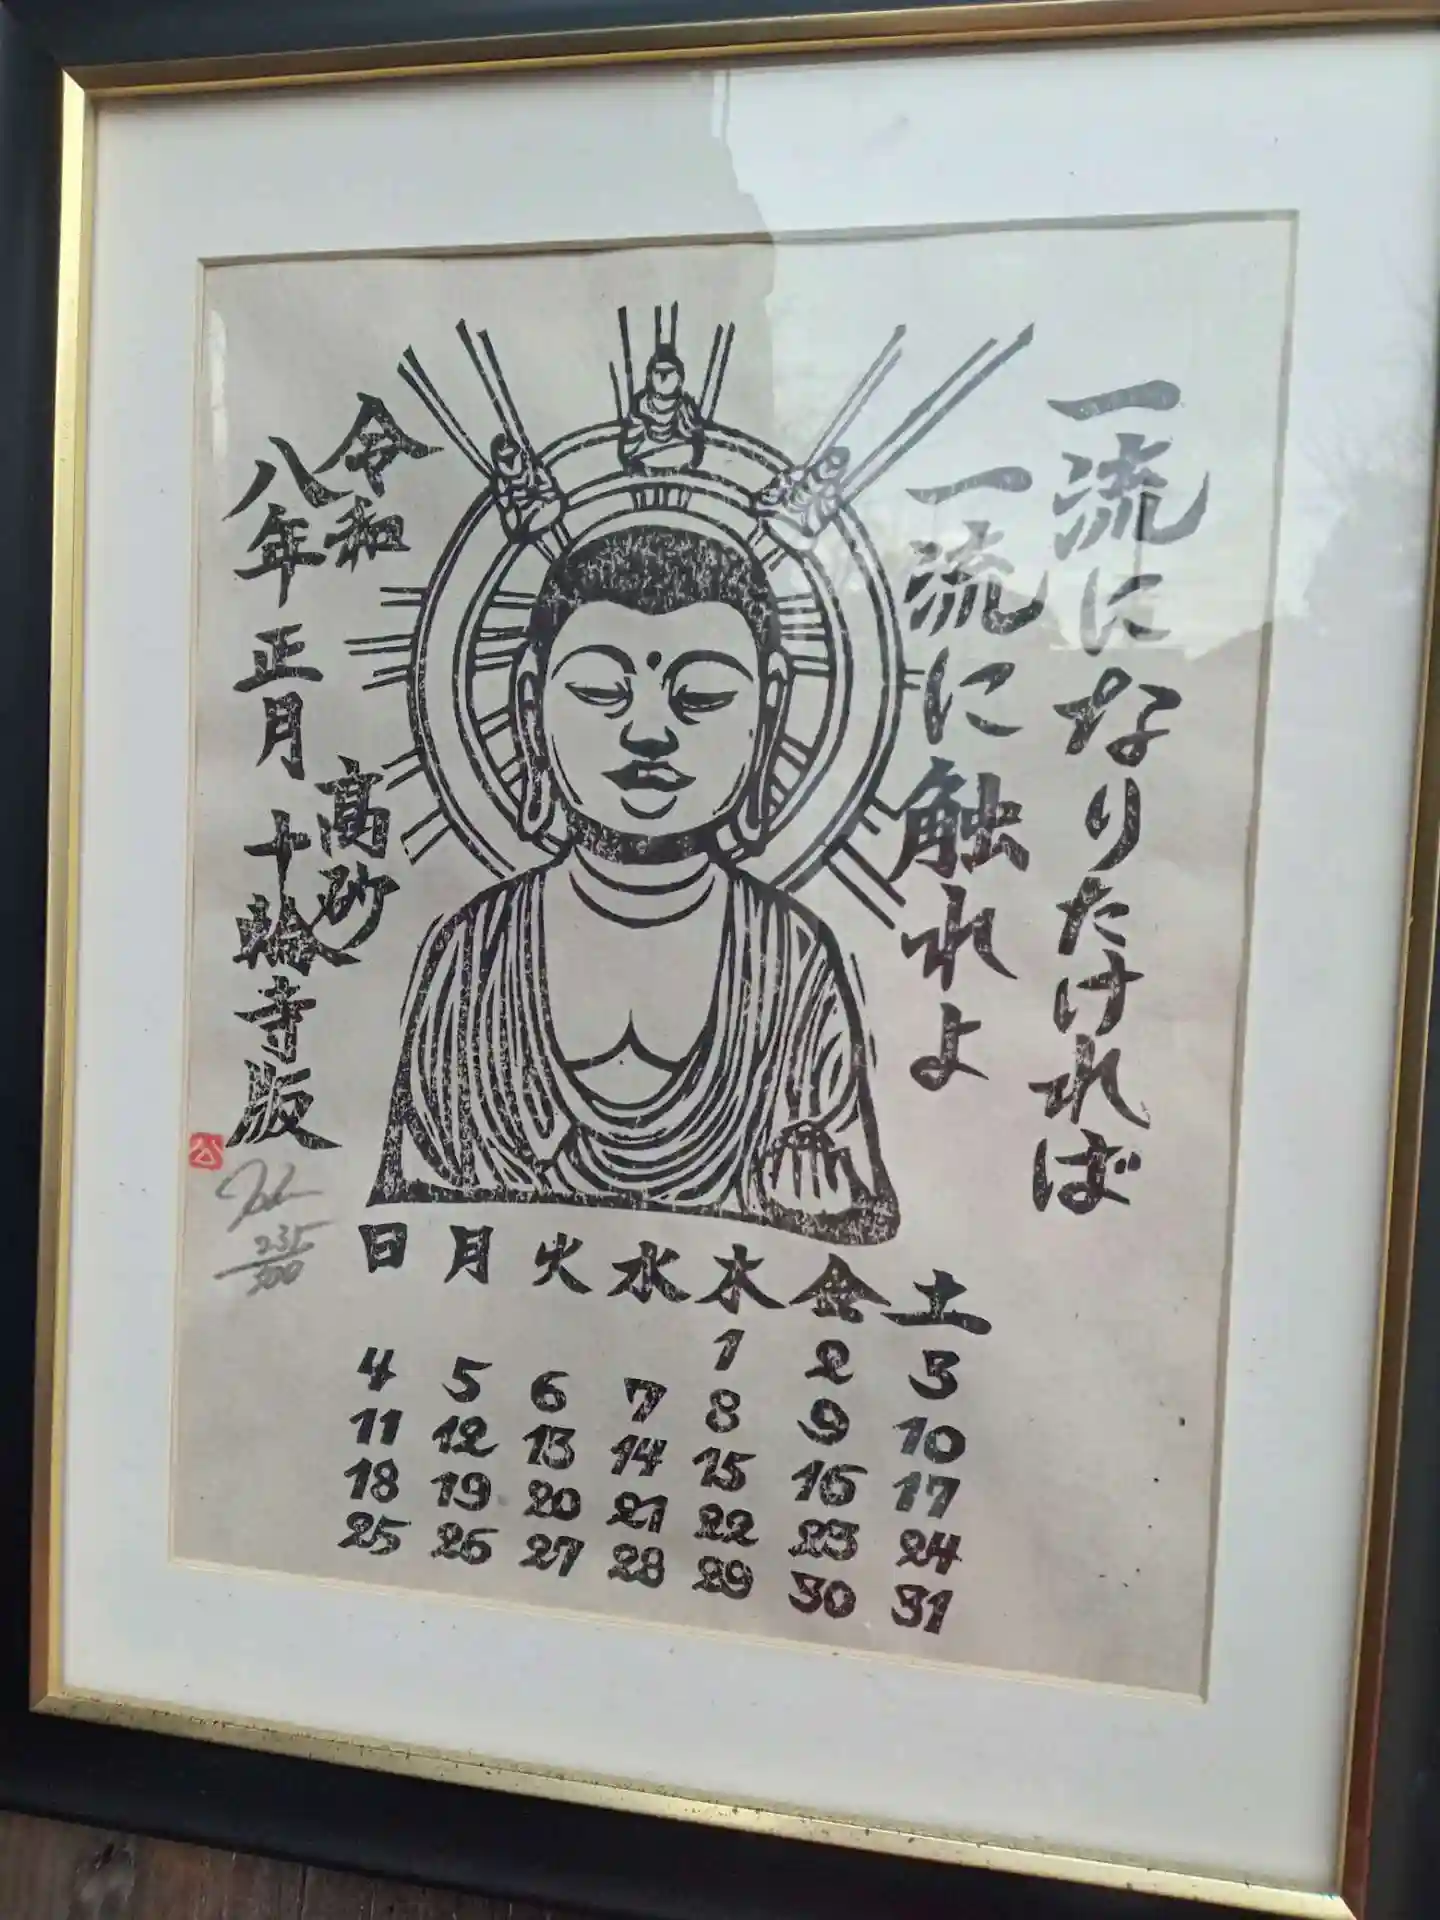 一流になりたければ
一流に触れよ
令和
八年 正月
高砂
十輪寺版
公
235/300
日 月 火 水 木 金 土
1 2 3
4 5 6 7 8 9 10
11 12 13 14 15 16 17
18 19 20 21 22 23 24
25 26 27 28 29 30 31